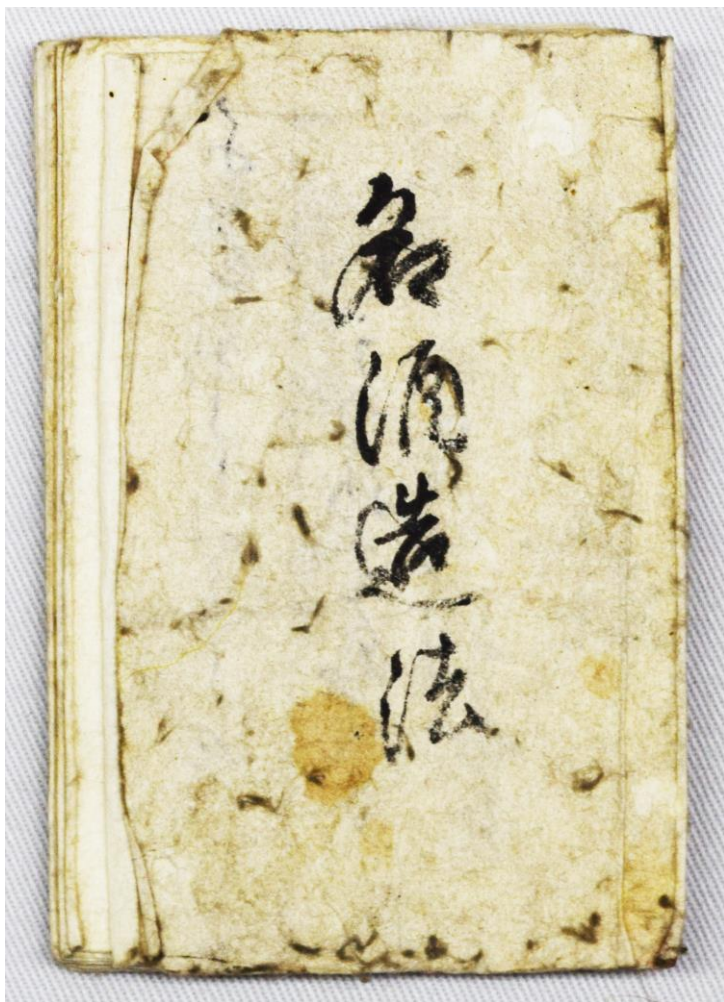 名酒造法